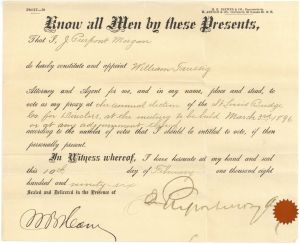 Know all Men by these Presents,
That I, J. Pierpont Morgan
do hereby constitute and appoint William Taussig
Attorney and Agent for me, and in my name, place and stead, to
vote as my proxy at the annual election of the St Louis Bridge
Co for Directors, at the meeting to be held March 2nd 1896
or at any adjournment thereof
according to the number of votes that I should be entitled to vote, if then
personally present.
In Witness whereof, I have hereunto set my hand and seal
this 10th day of February one thousand eight
hundred and ninety-six
Sealed and Delivered in the Presence of
J. Pierpont Morgan